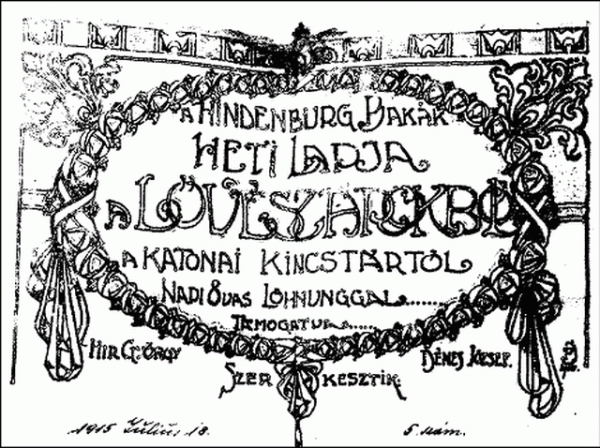 A HINDENBURG BAKÁK
HETI LAPJA
A LÖVÉSZÁROKBÓL
A KATONAI KINCSTÁRTÓL
NAPI 8 VAS LÖHNUNGGAL........
TÁMOGATVA.....
HIR GYÖRGY
DÉNES JÓZSEF.
SZERKESZTIK.
1915 Július 18.
5. szám.